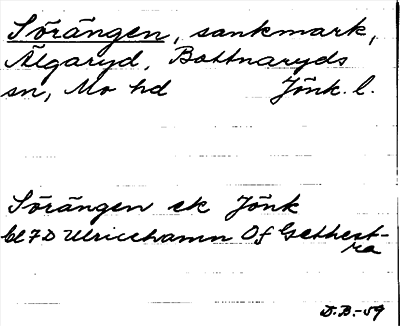 Sörängen, sankmark,
Älgaryd, Bottnaryds
sn, Mo hd Jönk. l.
Sörängen ek Jönk
bl 7D Ulricehamn Of Gethest-
ra
D.B.-59